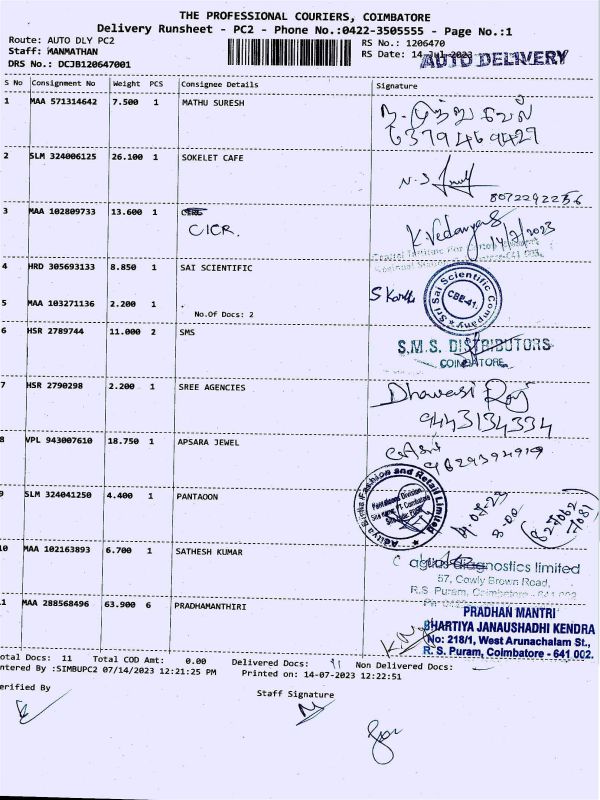 THE PROFESSIONAL COURIERS, COIMBATORE
Delivery Runsheet - PC2 - Phone No.:0422-3505555 - Page No.:1
Route: AUTO DLY PC2
Staff: MANMATHAN
DRS No.: DCJB120647001
RS No.: 1206470
RS Date: 14-Jul-2023
AUTO DELIVERY
S No Consignment No Weight PCS Consignee Details Signature
1 MAA 571314642 7.500 1 MATHU SURESH
6379469427
2 SLM 324006125 26.100 1 SOKELET CAFE
8072292256
3 MAA 102809733 13.600 1
CICR.
14/7/2023
4 HRD 305693133 8.850 1 SAI SCIENTIFIC
Sri Sai Scientific Company
CBE-41.
5 MAA 103271136 2.200 1 .
No.Of Docs: 2
6 HSR 2789744 11.000 2 SMS
S.M.S. DISTRIBUTORS
COIMBATORE.
7 HSR 2790298 2.200 1 SREE AGENCIES
9443134334
8 VPL 943007610 18.750 1 APSARA JEWEL
9 SLM 324041250 4.400 1 PANTAOON
Fashion and Retail Limited
10 MAA 102163893 6.700 1 SATHESH KUMAR
diagnostics limited
67, Cowly Brown Road,
R.S. Puram, Coimbatore - 641 002
11 MAA 288568496 63.900 6 PRADHAMANTHIRI
PRADHAN MANTRI
BHARTIYA JANAUSHADHI KENDRA
No: 218/1, West Arunachalam St.,
R. S. Puram, Coimbatore - 641 002.
otal Docs: 11 Total COD Amt: 0.00 Delivered Docs: 11 Non Delivered Docs:
ntered By :SIMBUPC2 07/14/2023 12:21:25 PM Printed on: 14-07-2023 12:22:51
erified By
Staff Signature